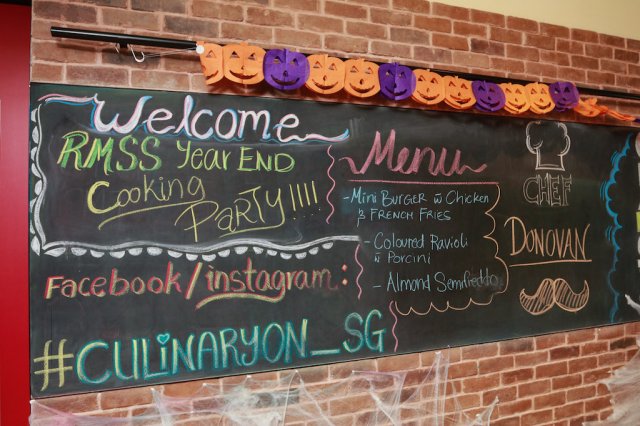 Welcome
RMSS Year END
Cooking
PARTY!!!!
Facebook/instagram:
#CULINARYON_SG
Menu
- Mini Burger w Chicken
& French Fries
- Coloured Ravioli
w Porcini
- Almond Semifreddo
CHEF
DONOVAN